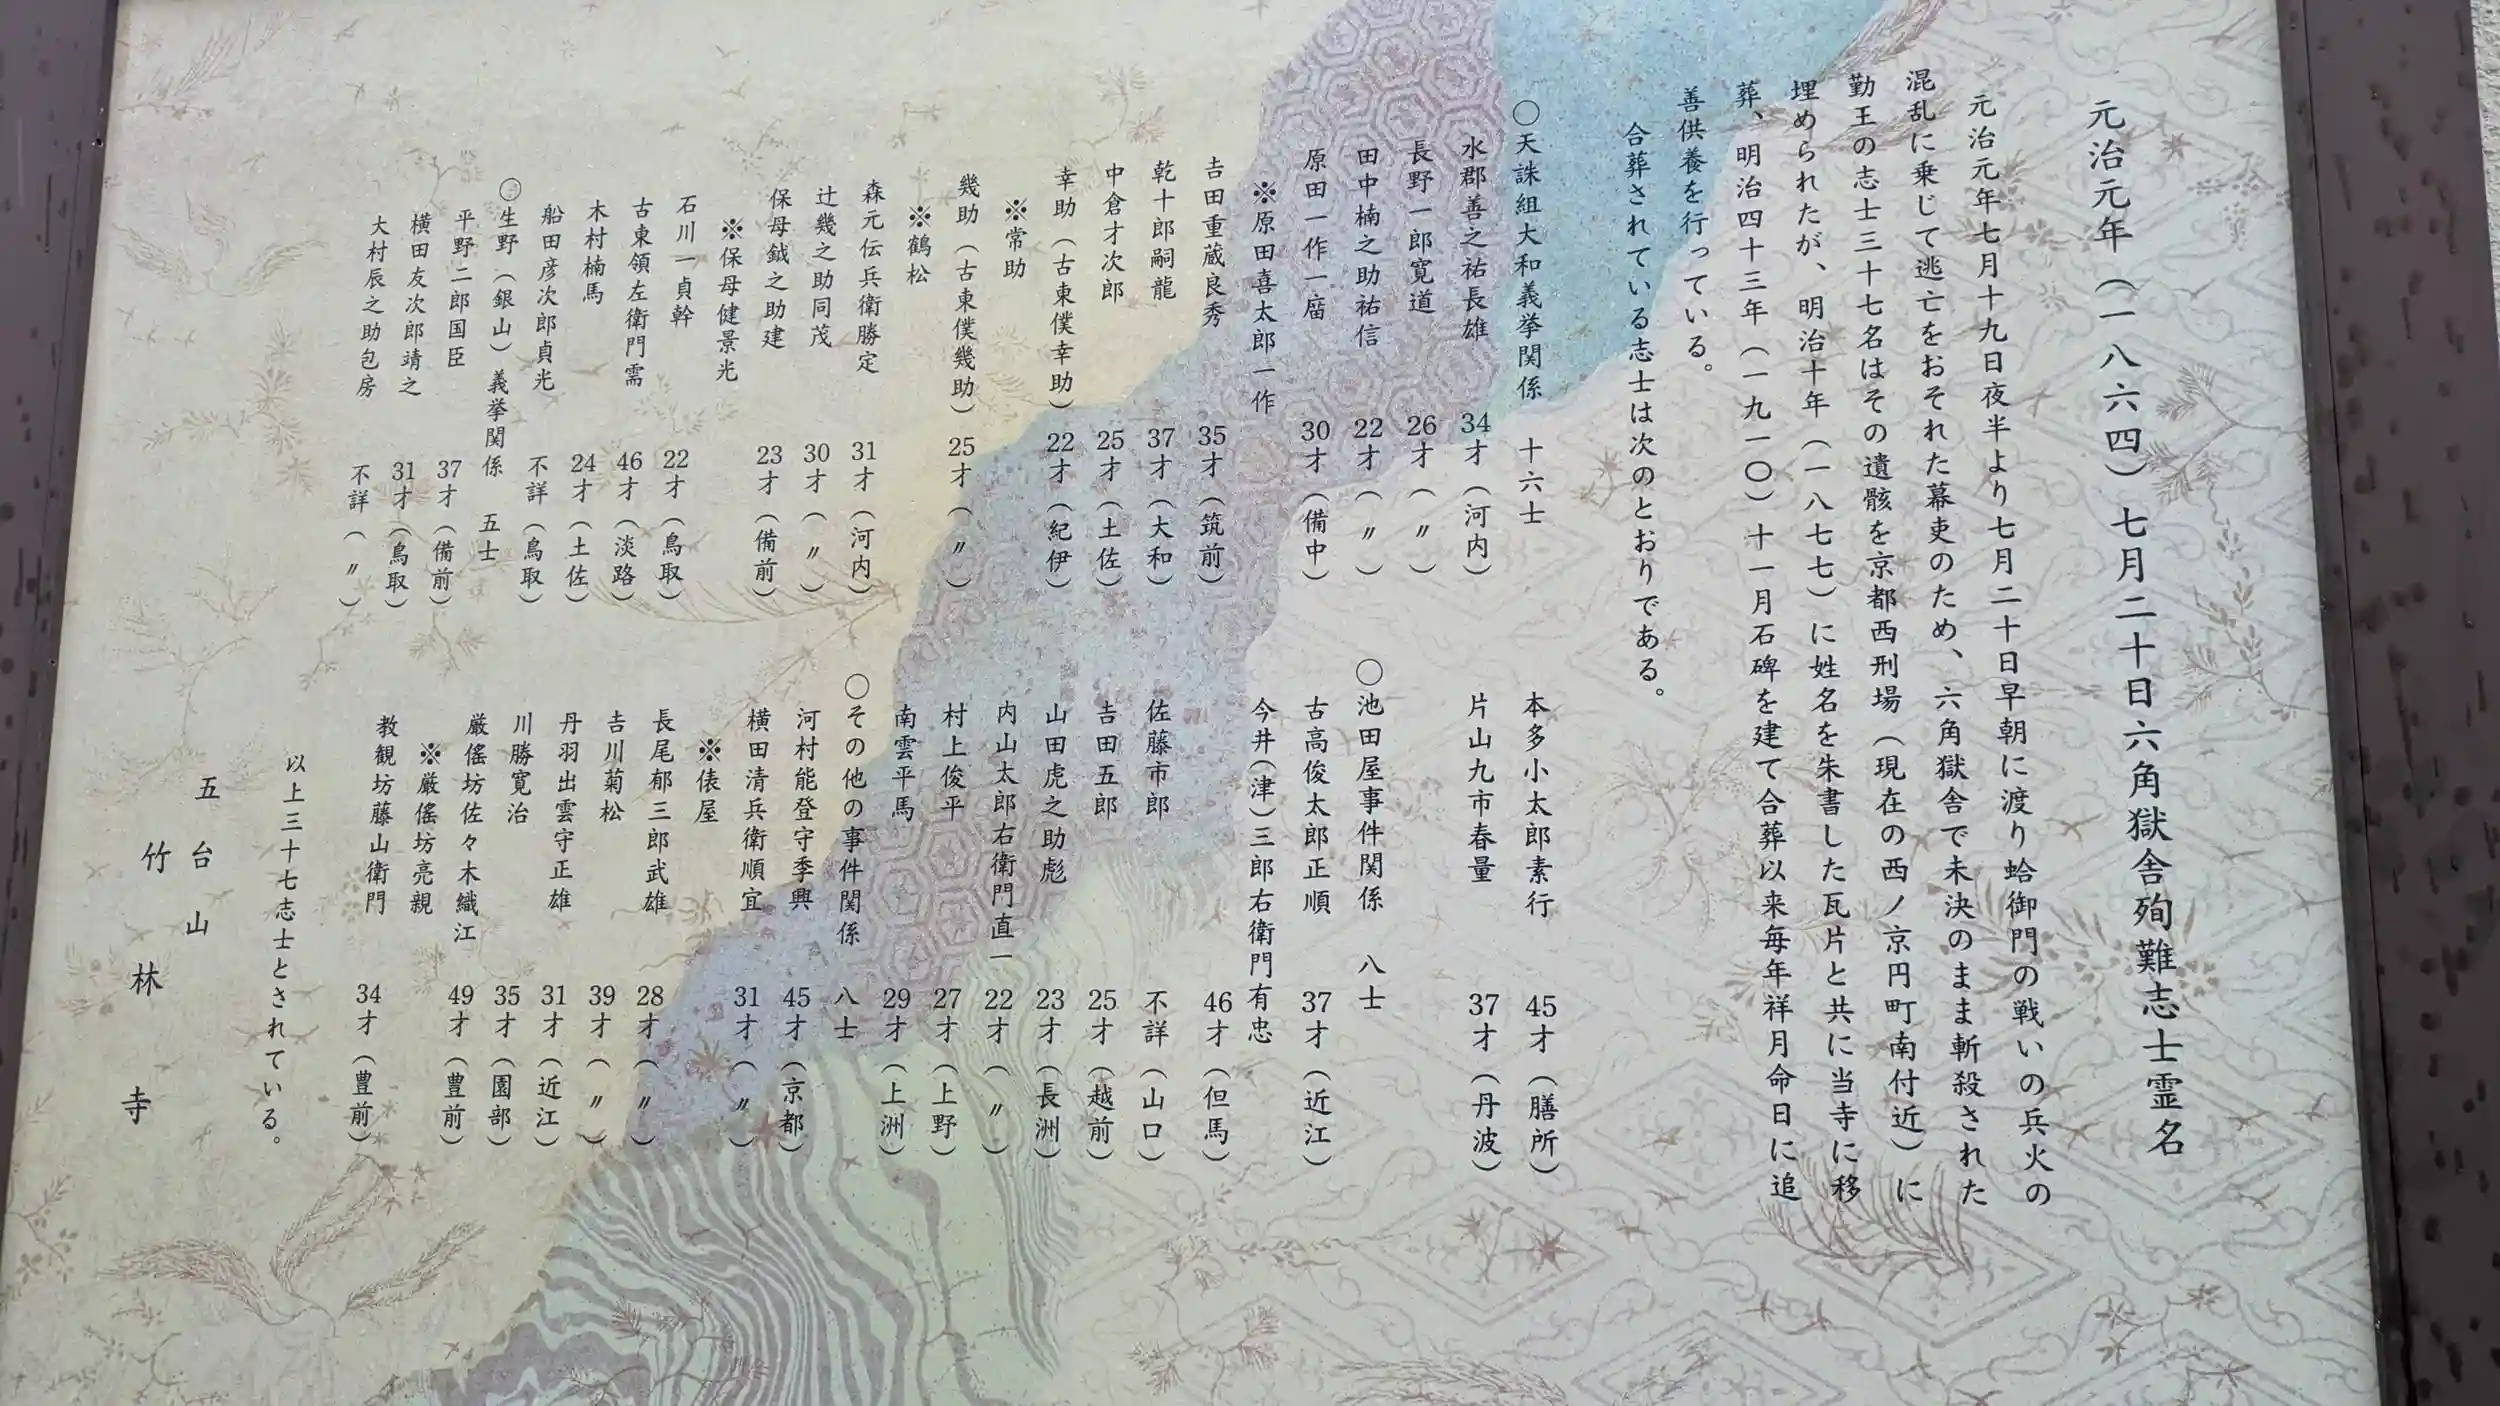 元治元年（一八六四）七月二十日六角獄舎殉難志士霊名
元治元年七月十九日夜半より七月二十日早朝に渡り蛤御門の戦いの兵火の
混乱に乗じて逃亡をおそれた幕吏のため、六角獄舎で未決のまま斬殺された
勤王の志士三十七名はその遺骸を京都西刑場（現在の西ノ京円町南付近）に
埋められたが、明治十年（一八七七）に姓名を朱書した瓦片と共に当寺に移
葬、明治四十三年（一九一〇）十一月石碑を建て合葬以来毎年祥月命日に追
善供養を行っている。
合葬されている志士は次のとおりである。
〇天誅組大和義挙関係　十六士
水郡善之祐長雄　34才（河内）
長野一郎寛道　26才（〃）
田中楠之助祐信　22才（〃）
原田一作一　30才（備中）
※原田喜太郎一作
吉田重蔵良秀　35才（筑前）
乾十郎嗣龍　37才（大和）
中倉才次郎　25才（土佐）
幸助（古東僕幸助）　22才（紀伊）
※常助
幾助（古東僕幾助）　25才（〃）
※鶴松
森元伝兵衛勝定　31才（河内）
辻幾之助同茂　30才（〃）
保母鉞之助建　23才（備前）
※保母健景光
石川一貞幹　22才（鳥取）
古東領左衛門需　46才（淡路）
木村楠馬　24才（土佐）
船田彦次郎貞光　不詳（鳥取）
〇生野（銀山）義挙関係　五士
平野二郎国臣　37才（備前）
横田友次郎靖之　31才（鳥取）
大村辰之助包房　不詳（〃）
本多小太郎素行　45才（膳所）
片山九市春量　37才（丹波）
〇池田屋事件関係　八士
古高俊太郎正順　37才（近江）
今井（津）三郎右衛門有忠
46才（但馬）
佐藤市郎　不詳（山口）
吉田五郎　25才（越前）
山田虎之助彪　23才（長洲）
内山太郎右衛門直一　22才（〃）
村上俊平　27才（上野）
南雲平馬　29才（上洲）
〇その他の事件関係　八士
河村能登守季興　45才（京都）
横田清兵衛順宜　31才（〃）
※俵屋
長尾郁三郎武雄　28才（〃）
吉川菊松　39才（〃）
丹羽出雲守正雄　31才（近江）
川勝寛治　35才（園部）
厳傜坊佐々木織江　49才（豊前）
※厳傜坊亮親
教観坊藤山衛門　34才（豊前）
以上三十七志士とされている。
五台山
竹林寺